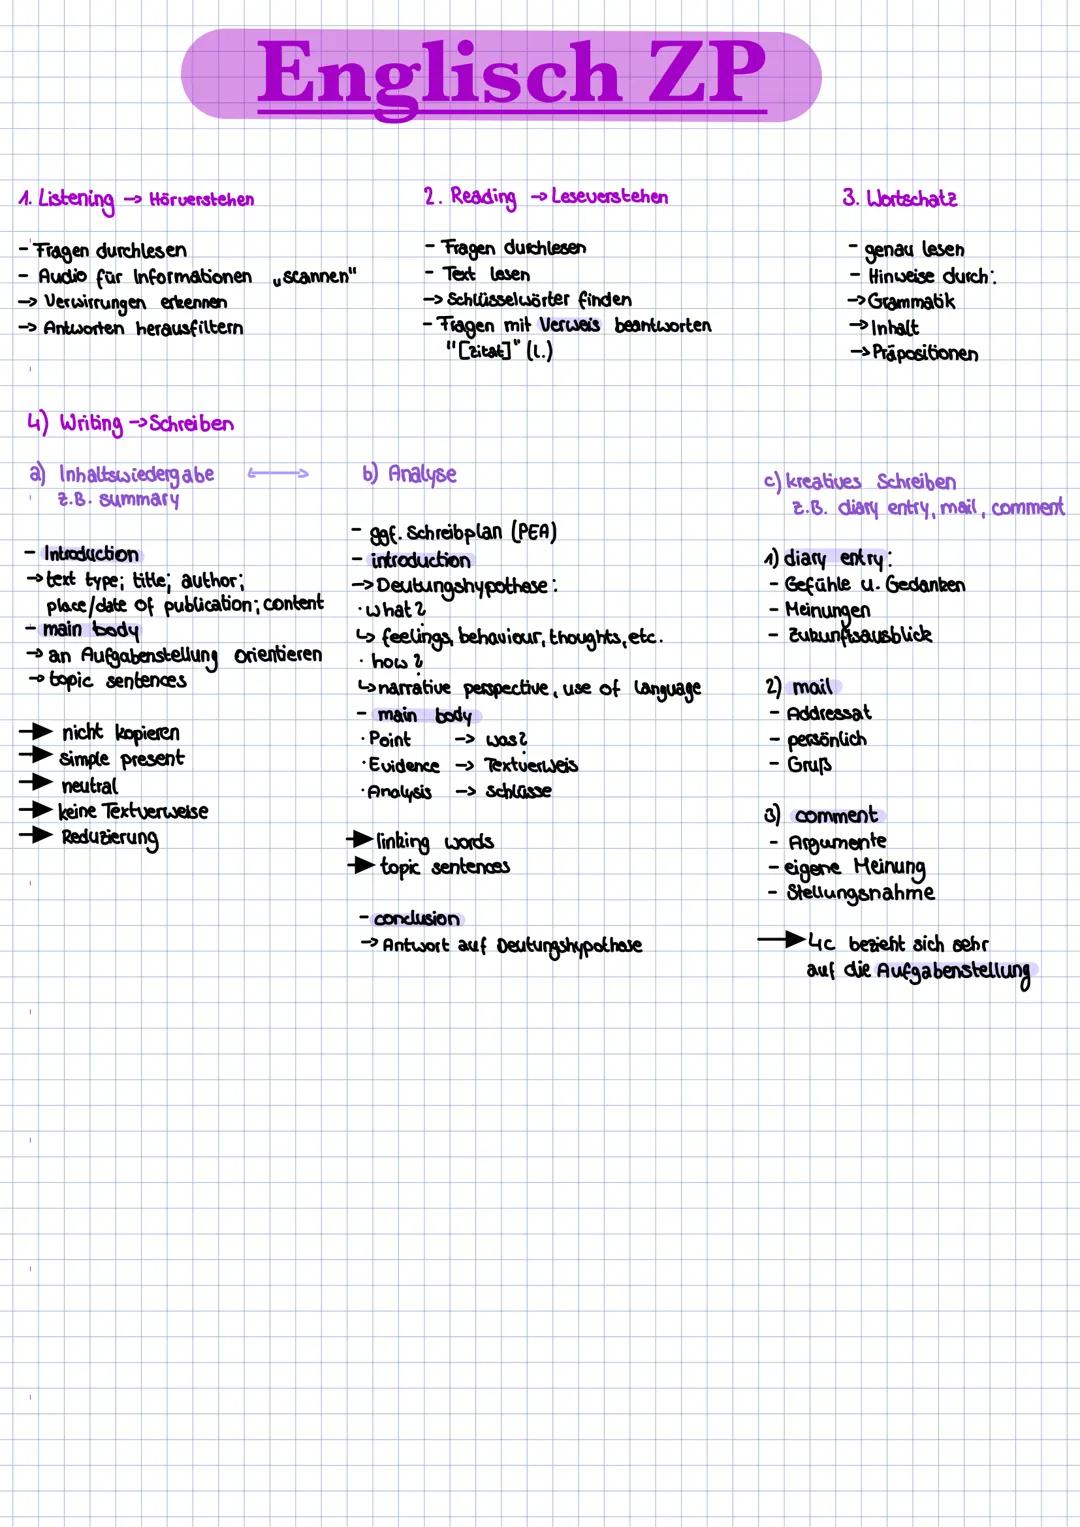 Englisch ZP
1. Listening → Hörverstehen
- Fragen durchlesen
- Audio für Informationen „scannen"
→ Verwirrungen erkennen
→ Antworten herausfiltern
2. Reading → Leseverstehen
- Fragen durchlesen
- Text lesen
→ Schlüsselwörter finden
- Fragen mit Verweis beantworten
"[zitat]" (l.)
3. Wortschatz
- genau lesen
- Hinweise durch:
→ Grammatik
→ Inhalt
→ Präpositionen
4) Writing → Schreiben
a) Inhaltswiedergabe ⟷
z.B. summary
- Introduction
→ text type; title; author;
place/date of publication; content
- main body
→ an Aufgabenstellung orientieren
→ topic sentences
→ nicht kopieren
→ simple present
→ neutral
→ keine Textverweise
→ Reduzierung
b) Analyse
- ggf. Schreibplan (PEA)
- introduction
→ Deutungshypothese:
· what?
↳ feelings, behaviour, thoughts, etc.
· how?
↳ narrative perspective, use of language
- main body
· Point → was?
· Evidence → Textverweis
· Analysis → schlüsse
→ linking words
→ topic sentences
- conclusion
→ Antwort auf Deutungshypothese
c) kreatives Schreiben
z.B. diary entry, mail, comment
1) diary entry:
- Gefühle u. Gedanken
- Meinungen
- Zukunftsausblick
2) mail
- Addressat
- persönlich
- Gruß
3) comment
- Argumente
- eigene Meinung
- Stellungsnahme
→ 4c bezieht sich sehr
auf die Aufgabenstellung